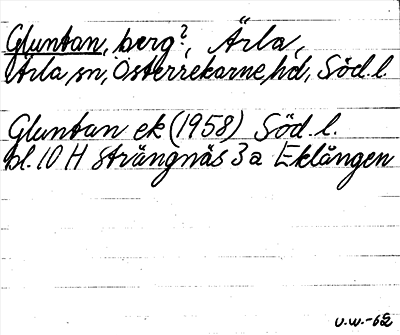 Gluntan, berg?, Ärla,
Ärla, sn, Österrekarne, hd, Söd. l.
Gluntan ek (1958) Söd. l.
bl. 10 H Strängnäs 3a Eklången
U.W.-62